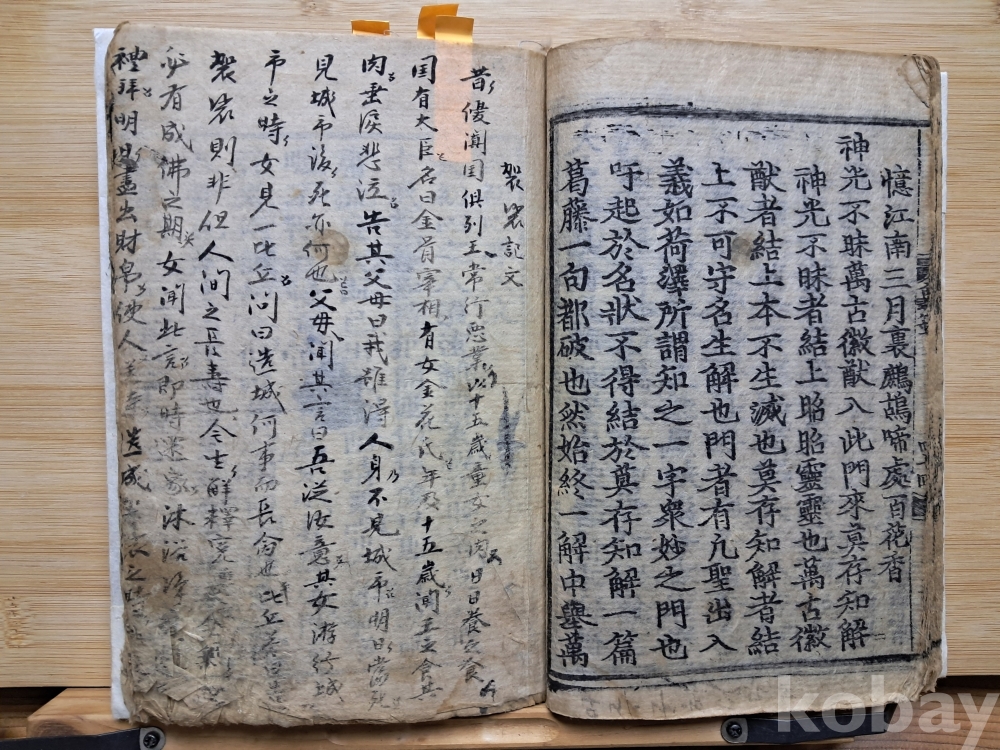 憶江南三月裏鷓鴣啼處百花香
神光不昧萬古徽猷入此門來莫存知解
神光不昧者結上昭昭靈靈也萬古徽
猷者結上本不生滅也莫存知解者結
上不可守名生解也門者有凡聖出入
義如荷澤所謂知之一字衆妙之門也
吁起於名狀不得結於莫存知解一篇
葛藤一句都破也然始終一解中擧萬
袈裟記文
昔優闐国俱列王常行惡業以十五歲童女 肉日日養之食
国有大臣名曰金眉宰相有女金花氏年及十五歲聞王食其
肉垂淚悲泣告其父母曰我雖得人身不見城市明日當死
見城市後死亦何也父母聞其言曰吾從汝意其女游行城
市之時女見一比丘问曰造城何事而長命也比丘答曰造
袈裟則非但人間之長壽也今生解釋
必有成佛之期女聞此言即時還家沐浴
禮拜明 盡出財帛使人 造成 之時
kobay